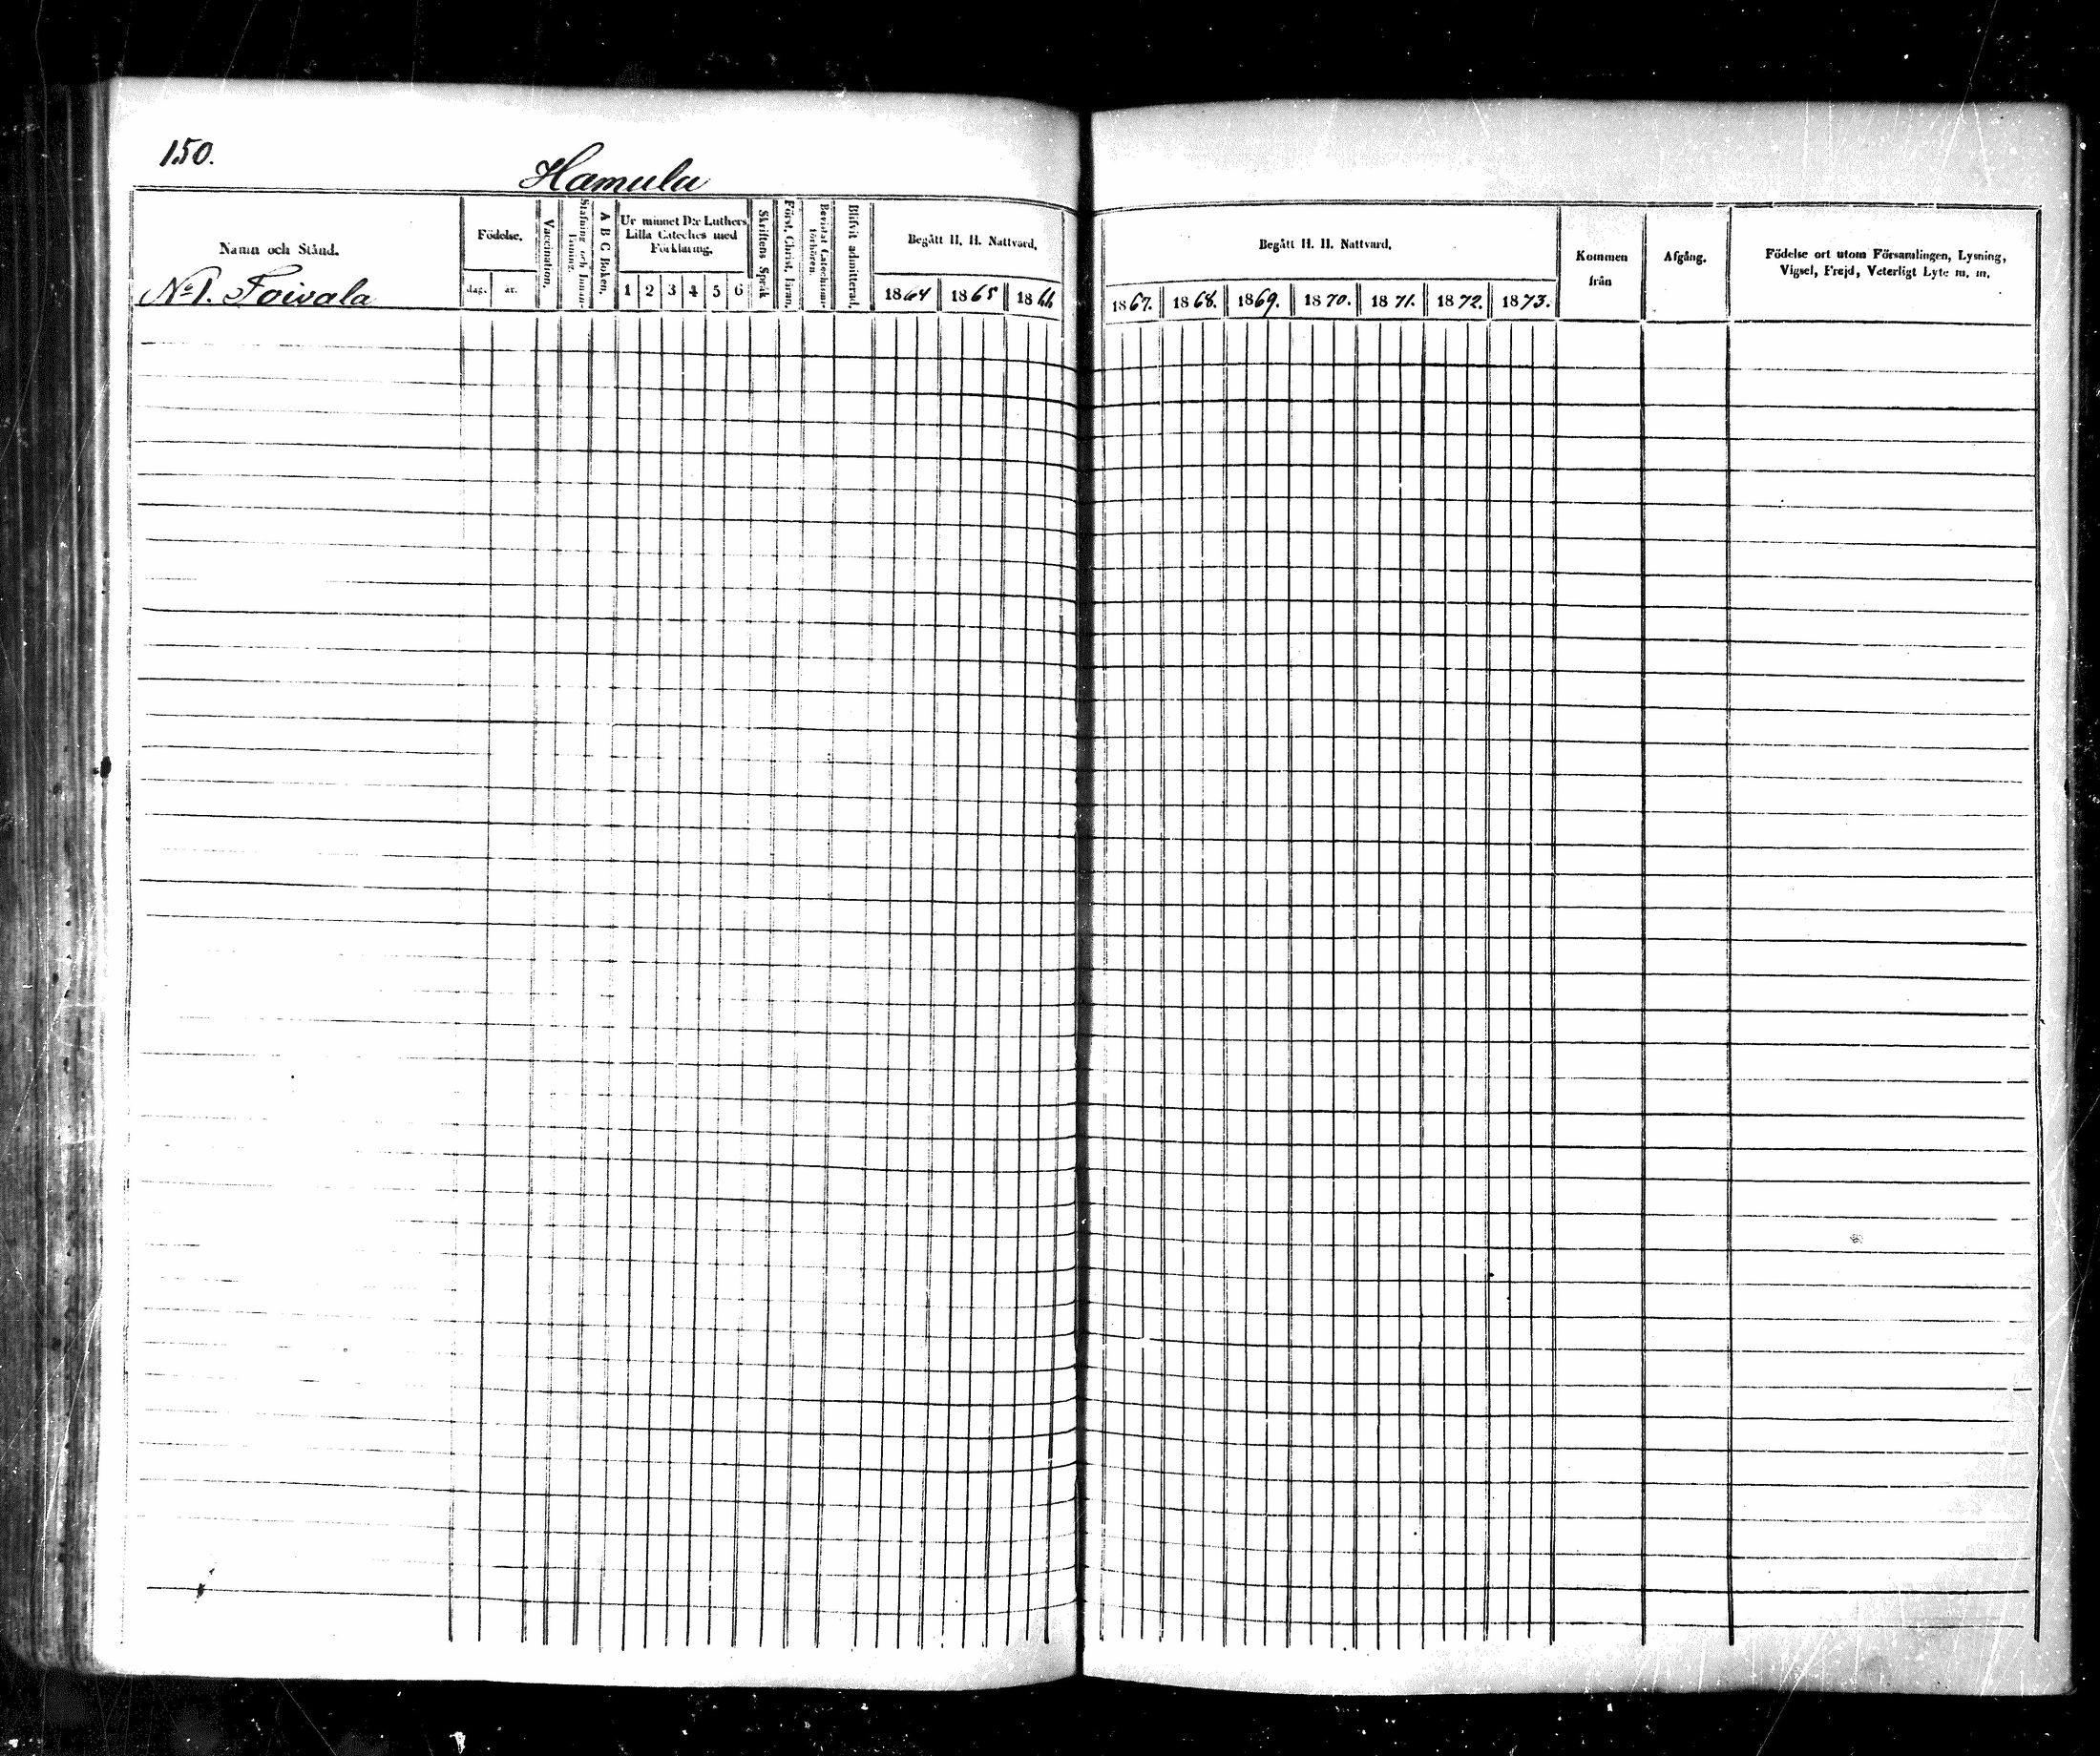 150.
Hamula
Namn och Stånd.
No 1. Toivala
Födelse.
dag. år.
Vaccination.
Stafning och Innan-
läsning.
A B C Boken.
Ur minnet D:r Luthers
Lilla Cateches med
Förklaring.
1 2 3 4 5 6
Skriftens Språk
Först. Christ. läran.
Bevistat Catechismi-
förhören.
Blifvit admitterad.
Begått H. H. Nattvard.
1864 1865 1866
Begått H. H. Nattvard.
1867. 1868. 1869. 1870. 1871. 1872. 1873.
Kommen
från
Afgång.
Födelse ort utom Församlingen, Lysning,
Vigsel, Frejd, Veterligt Lyte m. m.